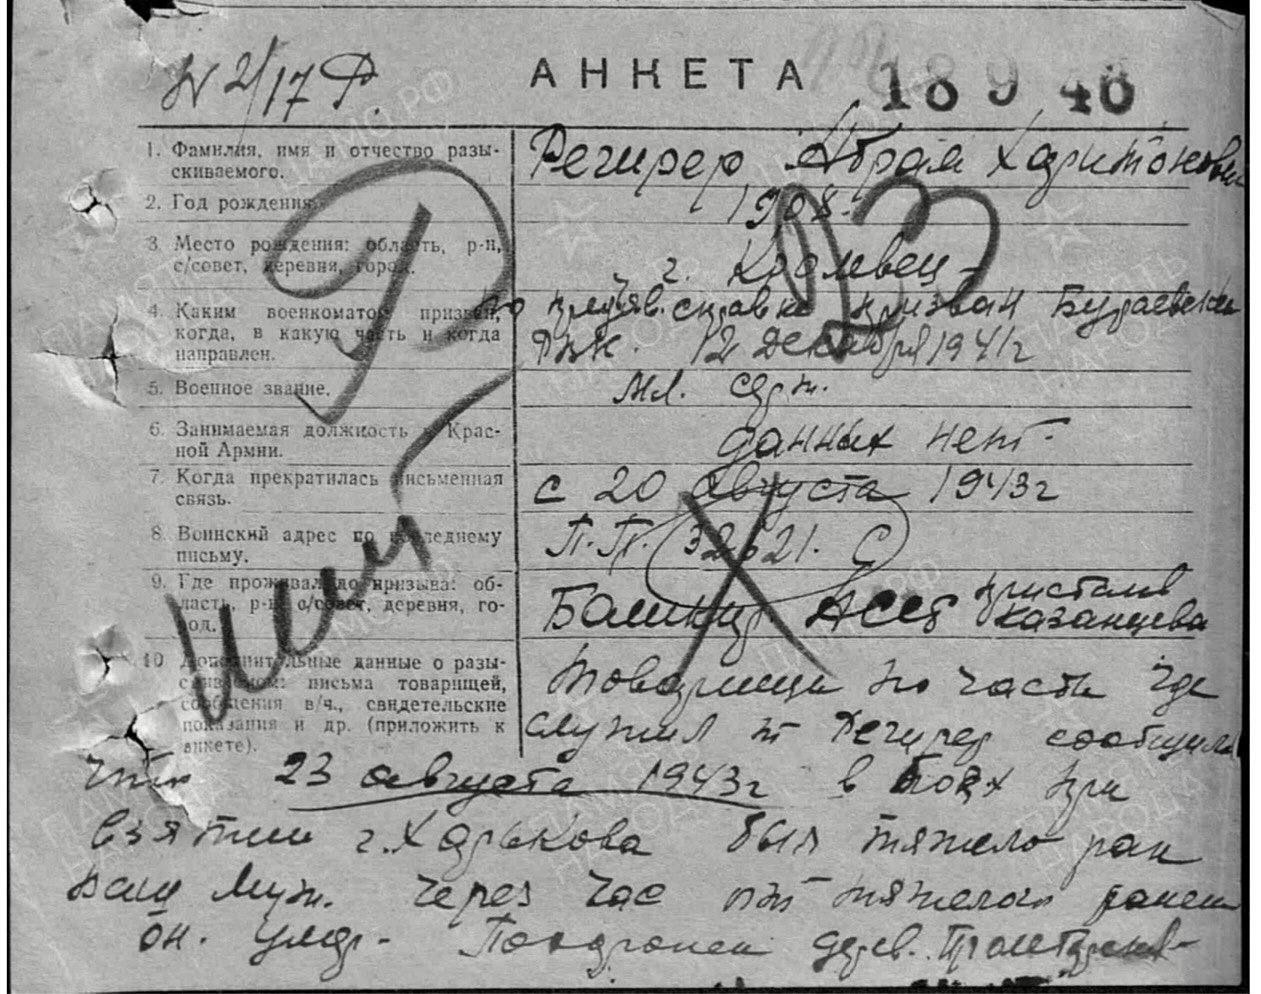 N 2/17 Р.
АНКЕТА 18946
1. Фамилия, имя и отчество разы-
скиваемого.
Регирер Абрам Харитонович
2. Год рождения.
1908.
3. Место рождения: область, р-н,
с/совет, деревня, город.
г. Кролевец
4. Каким военкоматом призван,
когда, в какую часть и когда
направлен.
по предъяв. справке призван Бураевским
РВК. 12 декабря 1941 г
5. Военное звание.
мл. серж.
6. Занимаемая должность в Крас-
ной Армии.
данных нет.
7. Когда прекратилась письменная
связь.
с 20 августа 1943 г
8. Воинский адрес по последнему
письму.
П.П. 32621. С
9. Где проживал до призыва: об-
ласть, р-н, с/совет, деревня, го-
род.
Башкир. АССР пристань
Казанцева
10 Дополнительные данные о разы-
скиваемом: письма товарищей,
сообщения в/ч., свидетельские
показания и др. (приложить к
анкете).
товарищи по части где
служил т Регирер сообщили
что 23 августа 1943 г в боях при
взятии г. Харькова был тяжело ран
Ваш муж. через час от тяжелого ранен
он. умер. Похоронен дер.